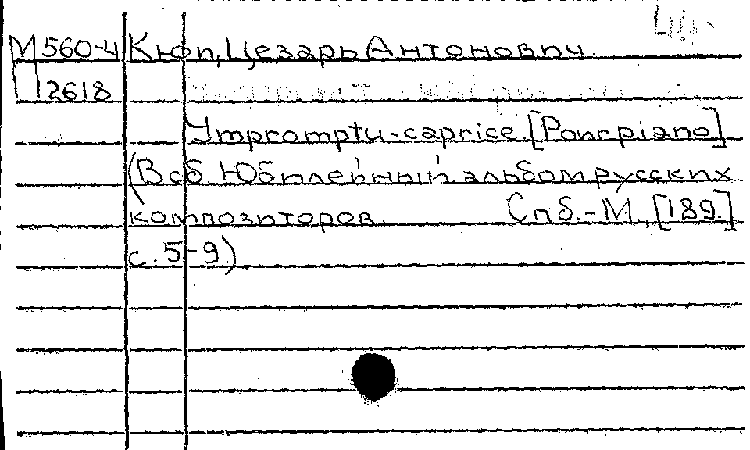 М560-4 Кюи, Цезарь Антонович.
П 2618
Impromptu-caprice. [Pour piano]
(В сб. Юбилейный альбом русских
композиторов Спб.-М., [189.]
с. 5-9)